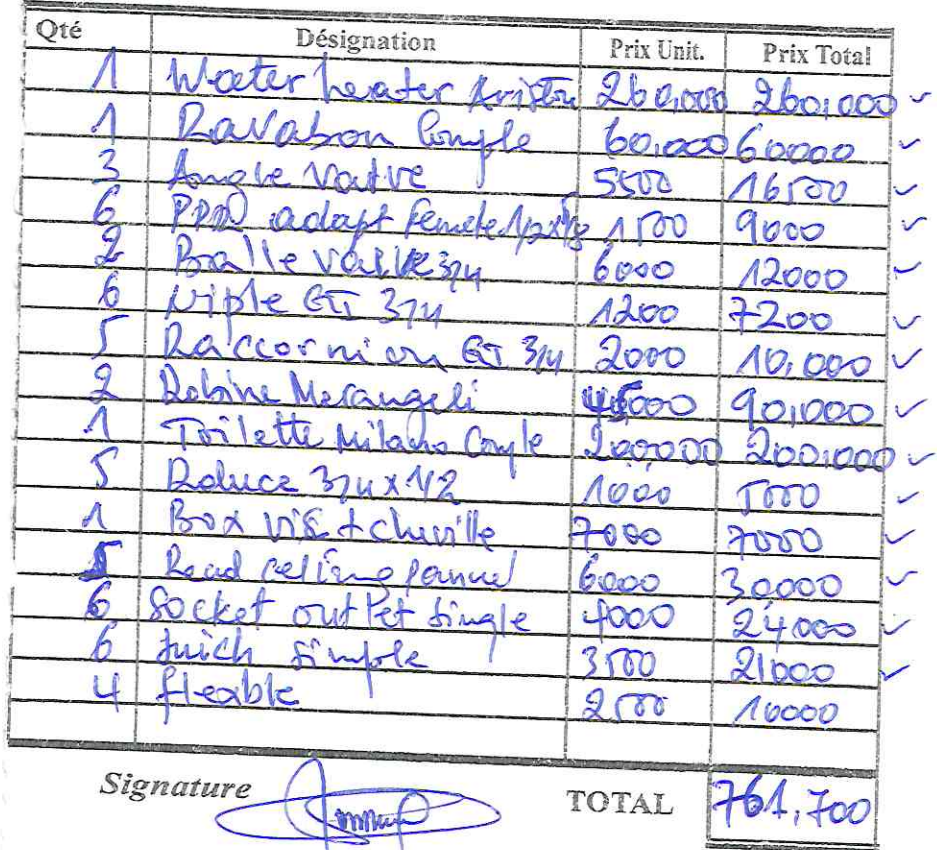 Qté Désignation Prix Unit. Prix Total
1 Water heater Ariston 260,000 260,000
1 Lavabon Comple 60,000 60000
3 Angle Valve 5500 16500
6 PPR adapt femele 1/2x1/2 1500 9000
2 Balle valve 3/4 6000 12000
6 Niple GI 3/4 1200 7200
5 Raccor ni on GI 3/4 2000 10,000
2 Robine Merangeli 45000 90,000
1 Toilette Milano Comple 200,000 200,000
5 Reduce 3/4 x 1/2 1000 5000
1 Box vis + cheville 7000 7000
5 Lead celing pannel 6000 30000
6 Socket outlet Single 4000 24,000
6 Suich Simple 3500 21000
4 flexable 2500 10000
Signature TOTAL 761,700